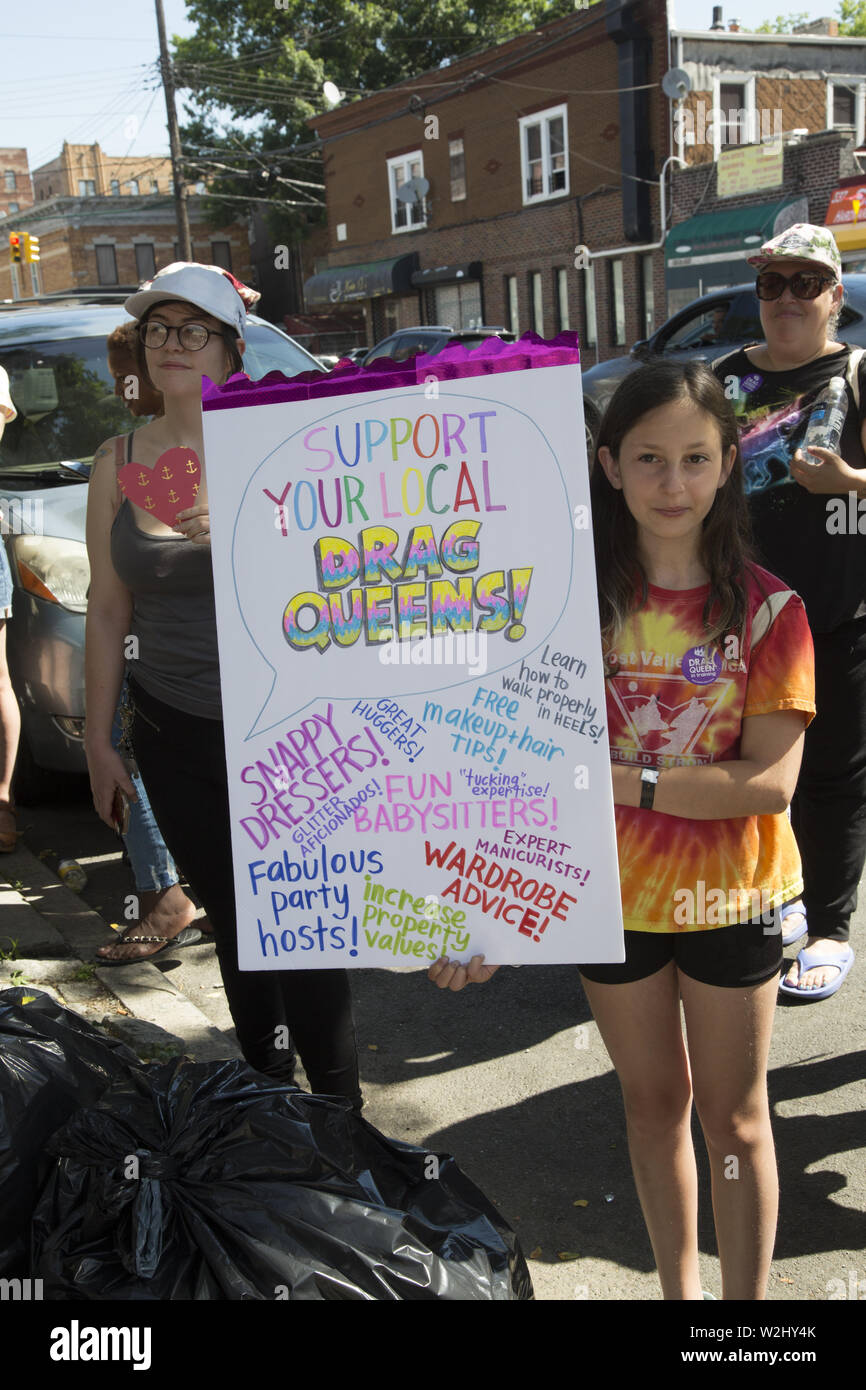 SUPPORT
YOUR LOCAL
DRAG
QUEENS!
Learn
how to
walk properly
in HEELS!
FREE
makeup + hair
TIPS!
GREAT
HUGGERS!
SNAPPY
DRESSERS!
GLITTER
AFICIONADOS!
"tucking"
expertise!
FUN
BABYSITTERS!
EXPERT
MANICURISTS!
FABULOUS
party
hosts!
increase
property
values!
WARDROBE
ADVICE!
DRAG
QUEEN
in training
alamy
Image ID: W2HY4K
www.alamy.com